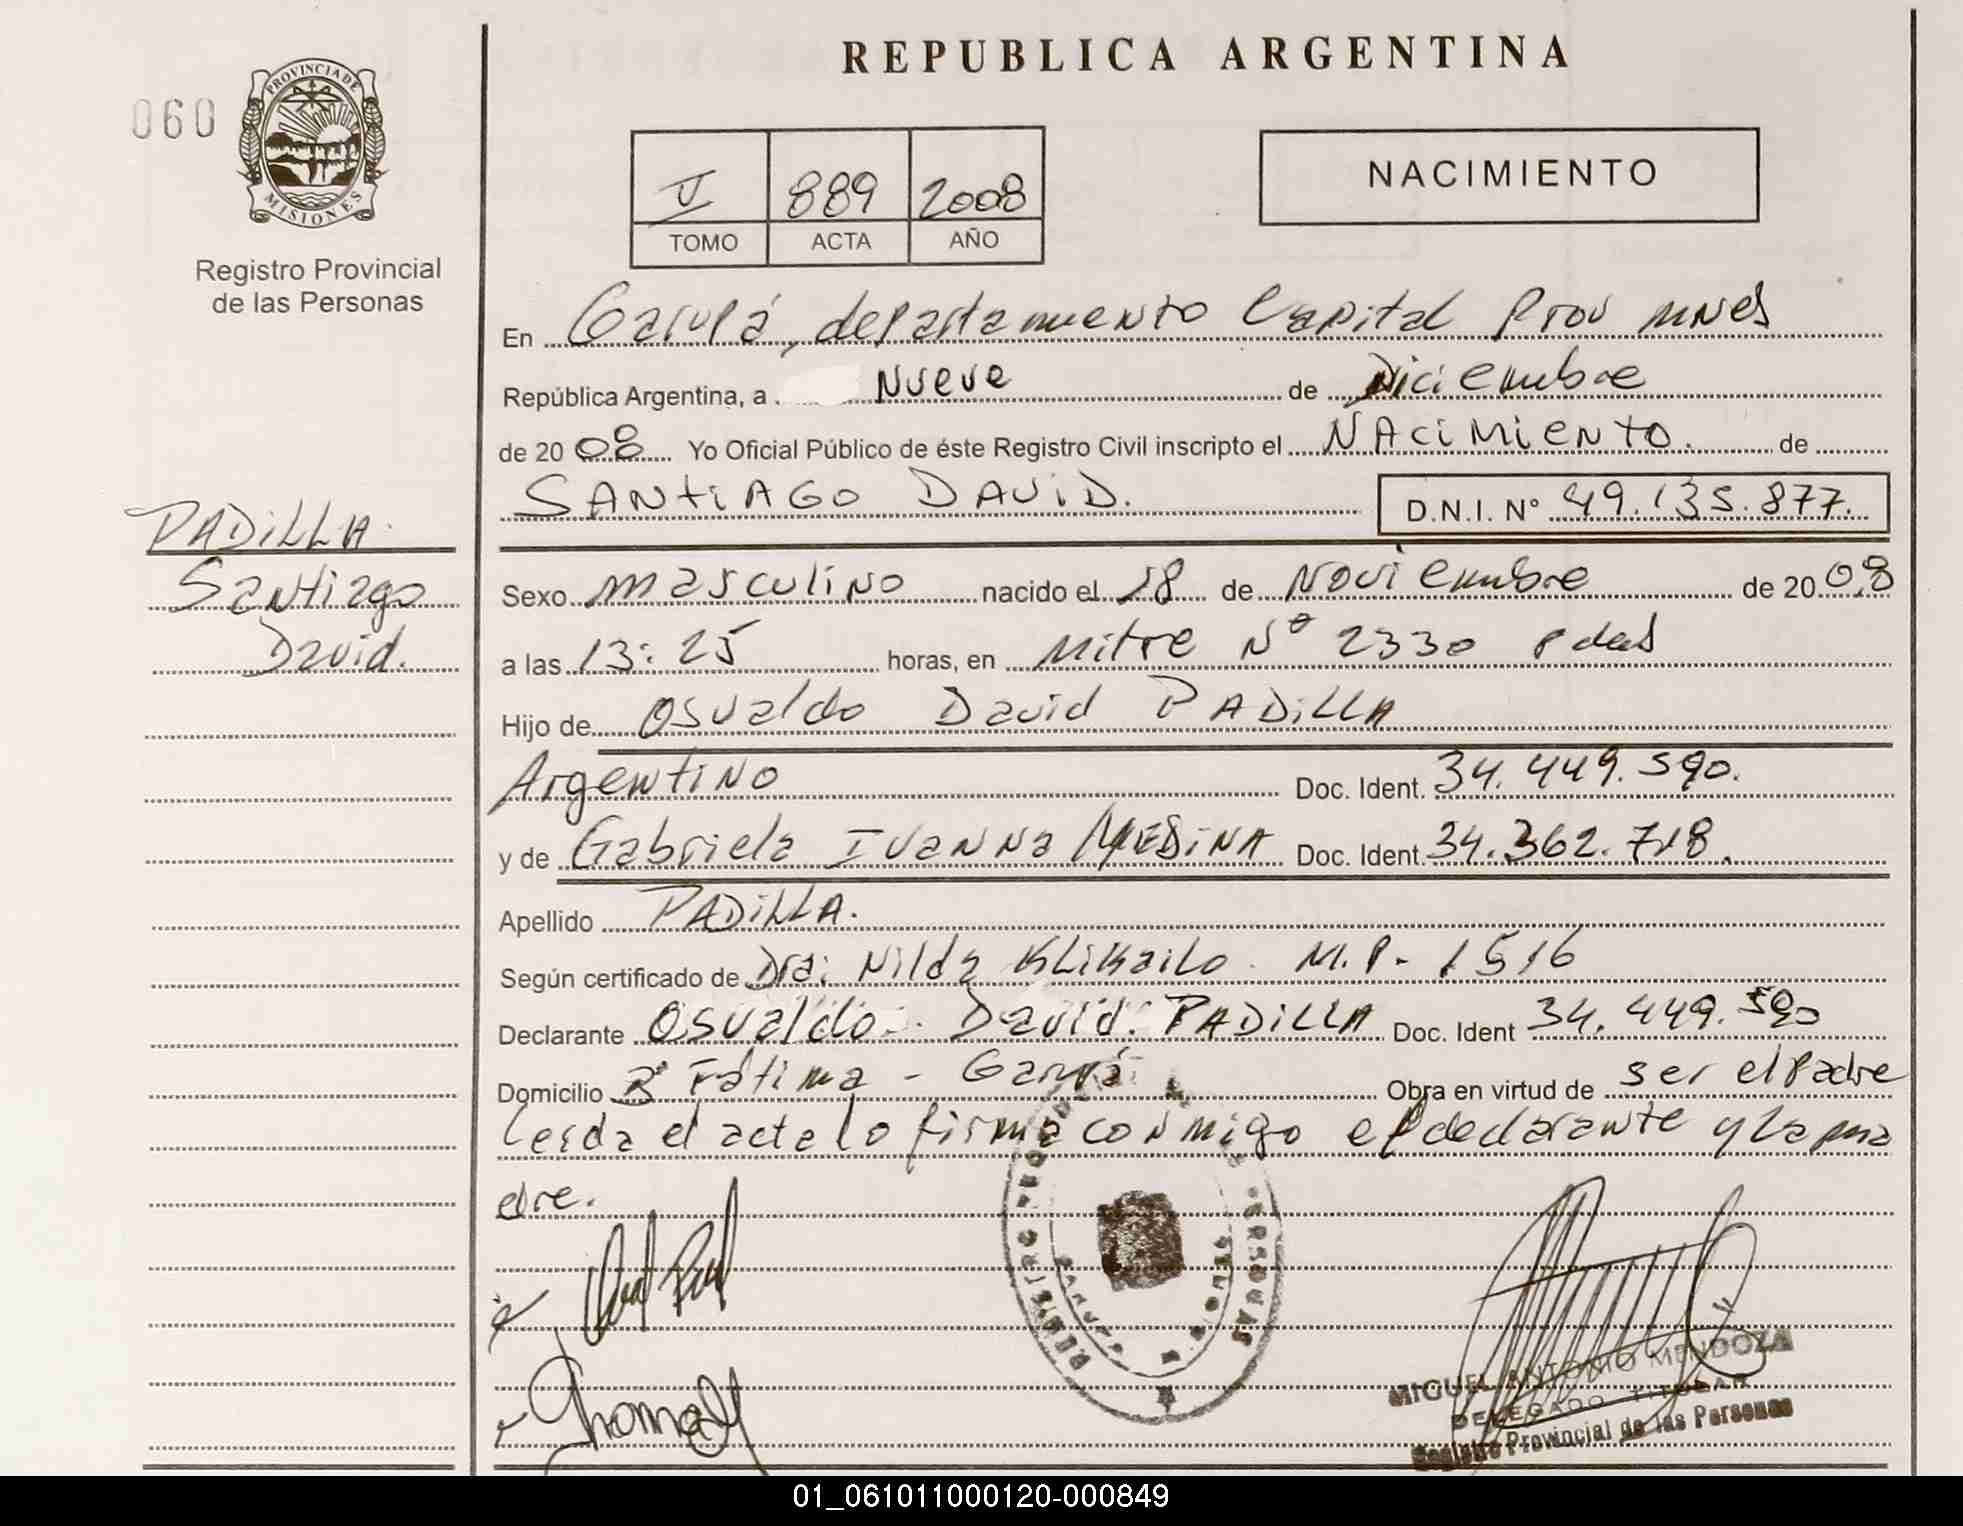 REPUBLICA ARGENTINA
060
PROVINCIA DE
MISIONES
Registro Provincial
de las Personas
V 889 2008
TOMO ACTA AÑO
NACIMIENTO
En Garupá, departamento Capital Prov mnes
República Argentina, a Nueve de Diciembre
de 2008 Yo Oficial Público de éste Registro Civil inscripto el NACIMIENTO. de
SANTIAGO DAVID. D.N.I. Nº 49.135.877.
PADILLA.
Santiago
David.
Sexo masculino nacido el 18 de Noviembre de 2008
a las 13:25 horas, en Mitre Nº 2330 Pdas
Hijo de Osvaldo David PADILLA
Argentino Doc. Ident. 34.449.590.
y de Gabriela Ivanna MEDINA Doc. Ident. 34.362.718.
Apellido PADILLA.
Según certificado de Dra: Nilda Klikailo. M.P. 1516
Declarante Osvaldo David. PADILLA Doc. Ident 34.449.590
Domicilio Bº Fátima - Garupá Obra en virtud de ser el Padre
Leida el acta lo firma conmigo el declarante y la ma
dre.
REGISTRO PERSONAS
GARUPA
MIGUEL ANTONIO MENDOZA
DELEGADO TITULAR
Registro Provincial de las Personas
01_061011000120-000849